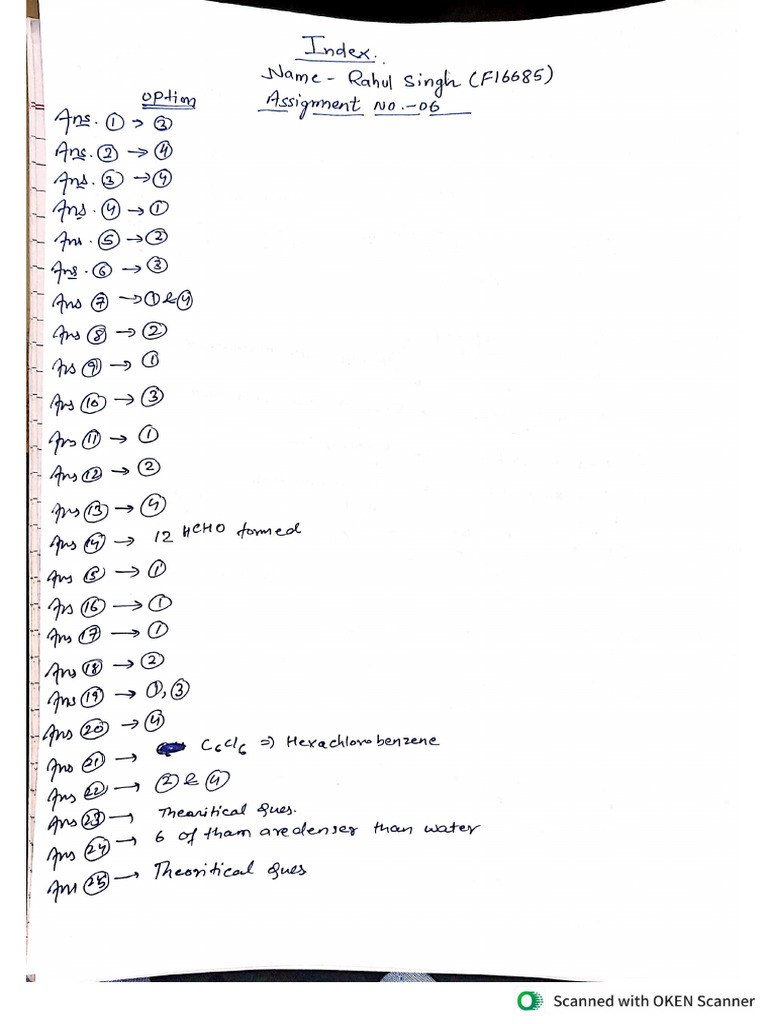 Index.
Name - Rahul Singh (F16685)
option
Assignment No.-06
Ans. ① → ③
Ans. ② → ④
Ans. ③ → ④
Ans. ④ → ①
Ans. ⑤ → ②
Ans. ⑥ → ③
Ans ⑦ → ① & ④
Ans ⑧ → ②
Ans ⑨ → ①
Ans ⑩ → ③
Ans ⑪ → ①
Ans ⑫ → ②
Ans ⑬ → ④
Ans ⑭ → 12 HCHO formed
Ans ⑮ → ①
Ans ⑯ → ①
Ans ⑰ → ①
Ans ⑱ → ②
Ans ⑲ → ①, ③
Ans ⑳ → ④
Ans ㉑ → C6Cl6 => Hexachlorobenzene
Ans ㉒ → ② & ④
Ans ㉓ → Thearitical Ques.
Ans ㉔ → 6 of tham are denser than water
Ans ㉕ → Theoritical Ques
Scanned with OKEN Scanner